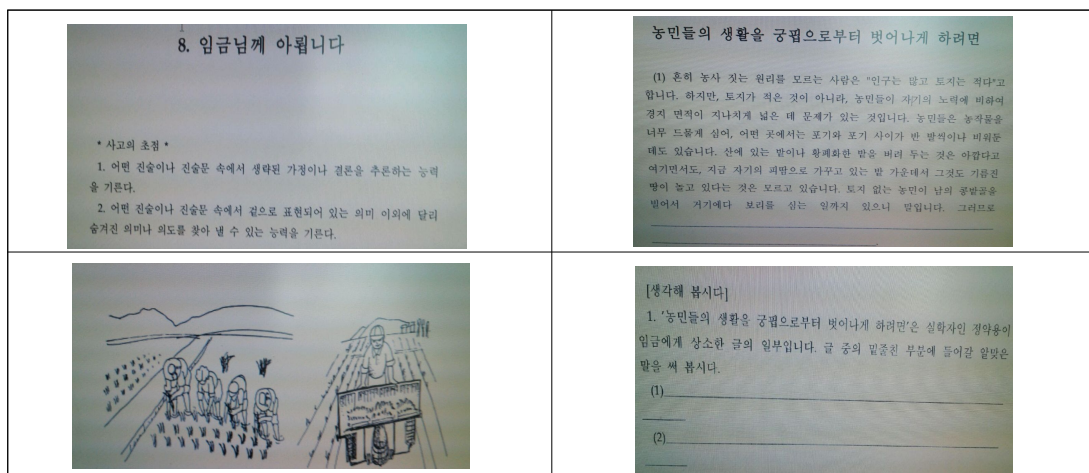 8. 임금님께 아룁니다
* 사고의 초점 *
1. 어떤 진술이나 진술문 속에서 생략된 가정이나 결론을 추론하는 능력
을 기른다.
2. 어떤 진술이나 진술문 속에서 겉으로 표현되어 있는 의미 이외에 달리
숨겨진 의미나 의도를 찾아 낼 수 있는 능력을 기른다.
농민들의 생활을 궁핍으로부터 벗어나게 하려면
(1) 흔히 농사 짓는 원리를 모르는 사람은 "인구는 많고 토지는 적다"고
합니다. 하지만, 토지가 적은 것이 아니라, 농민들이 자기의 노력에 비하여
경지 면적이 지나치게 넓은 데 문제가 있는 것입니다. 농민들은 농작물을
너무 드물게 심어, 어떤 곳에서는 포기와 포기 사이가 반 발씩이나 비워둔
데도 있습니다. 산에 있는 밭이나 황폐화한 밭을 버려 두는 것은 아깝다고
여기면서도, 지금 자기의 피땀으로 가꾸고 있는 밭 가운데서 그것도 기름진
땅이 놀고 있다는 것은 모르고 있습니다. 토지 없는 농민이 남의 콩밭골을
빌어서 거기에다 보리를 심는 일까지 있으니 말입니다. 그러므로
[생각해 봅시다]
1. '농민들의 생활을 궁핍으로부터 벗어나게 하려면'은 실학자인 정약용이
임금에게 상소한 글의 일부입니다. 글 중의 밑줄친 부분에 들어갈 알맞은
말을 써 봅시다.
(1)
(2)